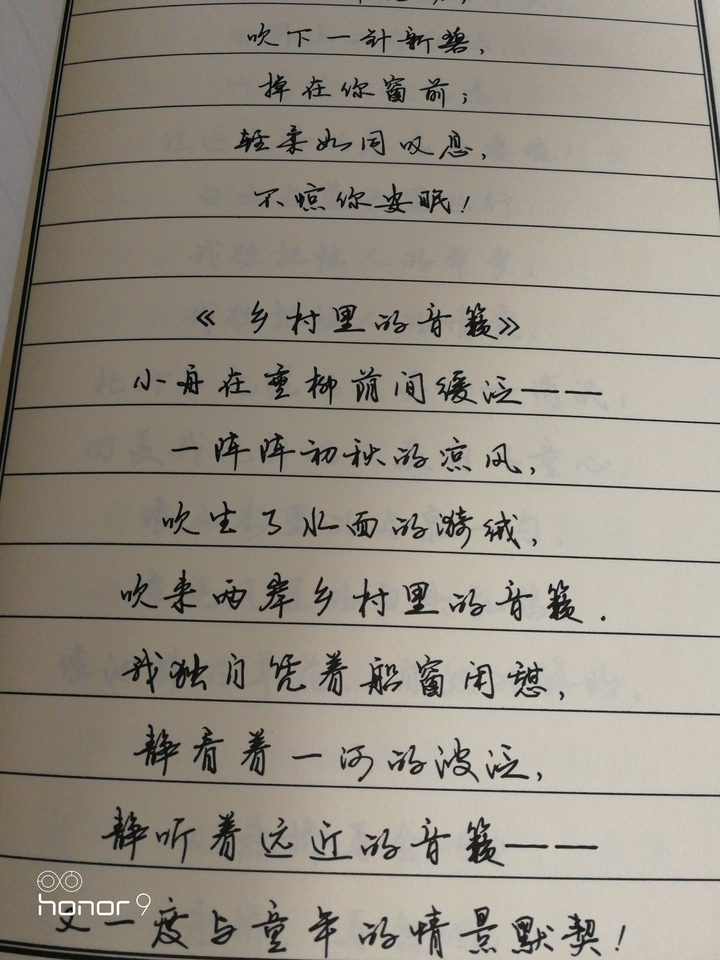 吹下一针新碧，
掉在你窗前；
轻柔如同叹息，
不惊你安眠！
《乡村里的音籁》
小舟在垂柳荫间缓泛——
一阵阵初秋的凉风，
吹生了水面的漪绒，
吹来两岸乡村里的音籁.
我独自凭着船窗闲憩，
静看着一河的波泛，
静听着远近的音籁——
又一度与童年的情景默契！
honor 9